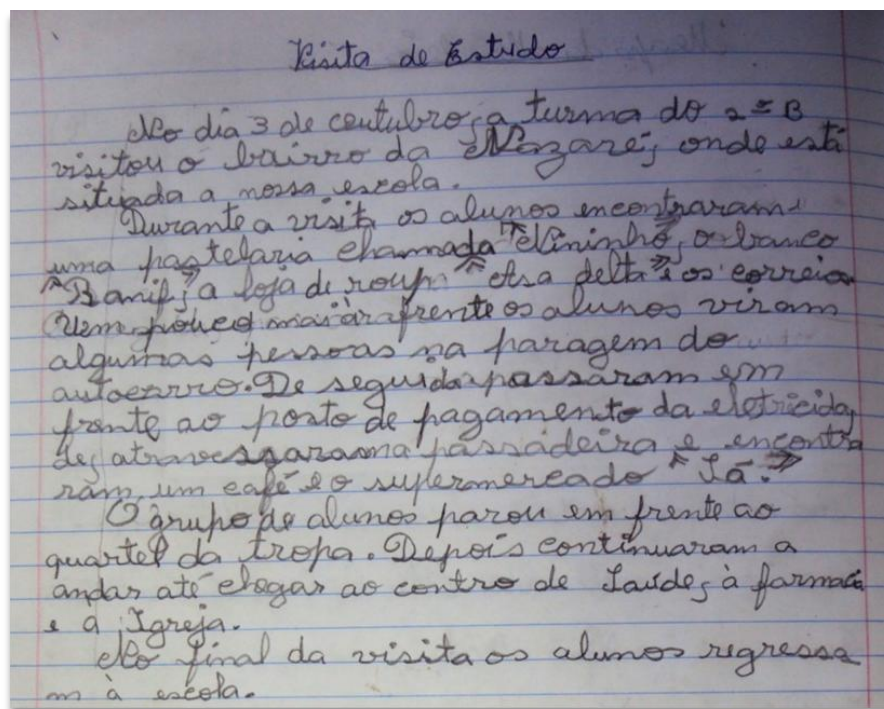 Visita de Estudo
No dia 3 de outubro, a turma do 2º B
visitou o bairro da Nazaré, onde está
situada a nossa escola.
Durante a visita os alunos encontraram
uma pastelaria chamada "Nininho, o banco
"Banif", a loja de roup "Asa delta" e os correio
Uem pouco mais à frente os alunos viram
algumas pessoas na paragem do
autocarro. De seguida passaram em
frente ao posto de pagamento da eletricida
de, atravessaram a passadeira e encontra
ram, um café e o supermercado "Sá."
O grupo de alunos parou em frente ao
quartel da tropa. Depois continuaram a
andar até chegar ao centro de Saúde, à farmaci
e a Igreja.
No final da visita os alunos regressa
m à escola.